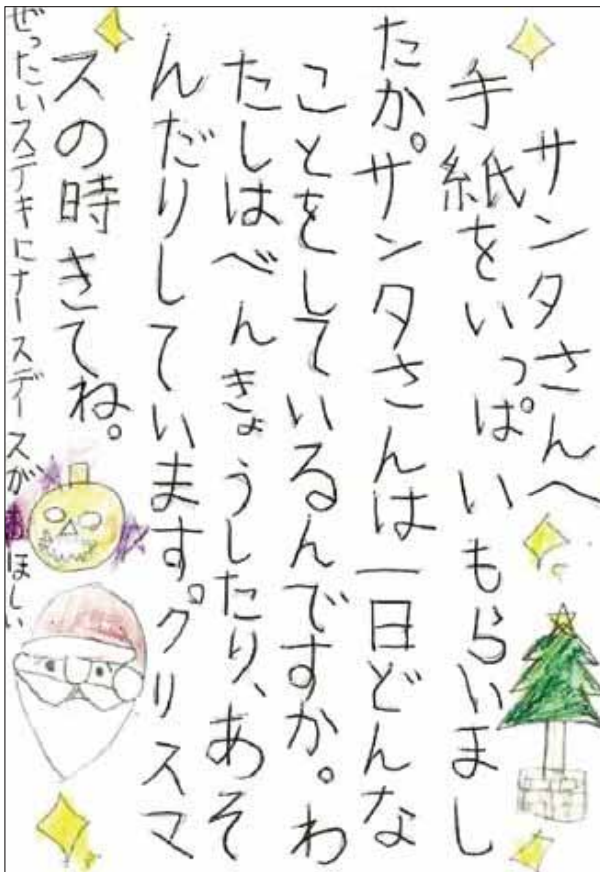 サンタさんへ
手紙をいっぱいもらいまし
たか。サンタさんは一日どんな
ことをしているんですか。わ
たしはべんきょうしたり、あそ
んだりしています。クリスマ
スの時きてね。
ぜったいステキにナースデースがほしい